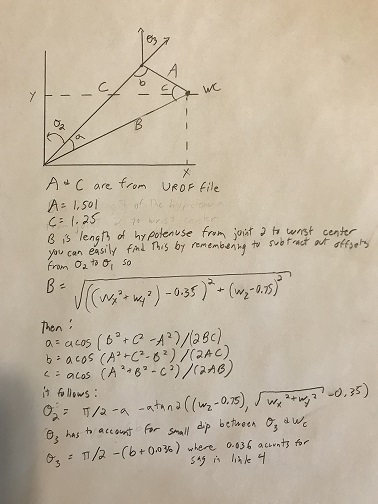 θ3
A
b
C
c
WC
Y
θ2
a
B
X
A & C are from URDF file
A = 1.501
C = 1.25
B is length of hypotenuse from joint 2 to wrist center
you can easily find this by remembering to subtract out offsets
from O2 to O1 so
B = √(((Wx²+Wy²) - 0.35)² + (Wz-0.75)²)
Then:
a = acos (B²+C²-A²)/(2BC)
b = acos (A²+C²-B²)/(2AC)
c = acos (A²+B²-C²)/(2AB)
it follows:
θ2 = π/2 - a - atan2((Wz-0.75), √(Wx²+Wy²) - 0.35)
θ3 has to account for small dip between O3 & WC
θ3 = π/2 - (b+0.036) where 0.036 accounts for
sag in link 4